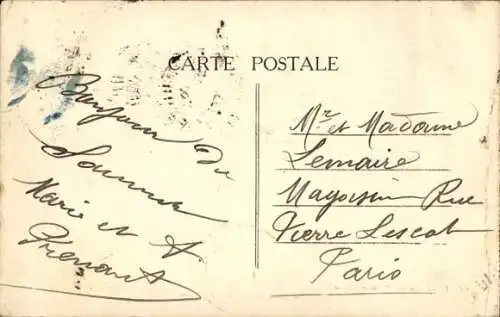 CARTE POSTALE
Bonjour du
Saumur
Marie et A
Mr et Madame
Lemaire
Rue
Pierre Lescot
Paris